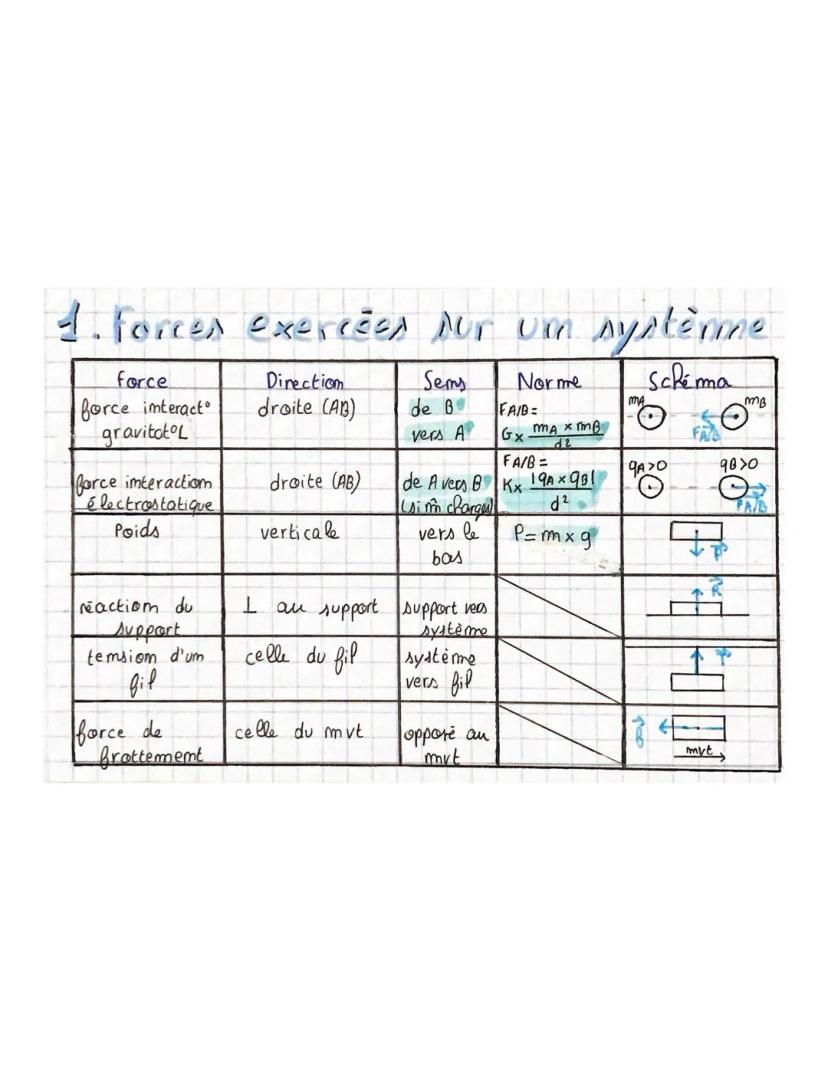 1. Forces exercées sur un système
Force Direction Sens Norme Schéma
force interact° gravitat°L droite (AB) de B vers A FA/B = G x mA x mB / d² mA mB FA/B
force interaction électrostatique droite (AB) de A vers B (si m̂ charges) FA/B = K x |qA x qB| / d² qA>0 qB>0 FA/B
Poids verticale vers le bas P = m x g P
réaction du support ⊥ au support support vers système R
tension d'un fil celle du fil système vers fil T
force de frottement celle du mvt opposé au mvt f mvt